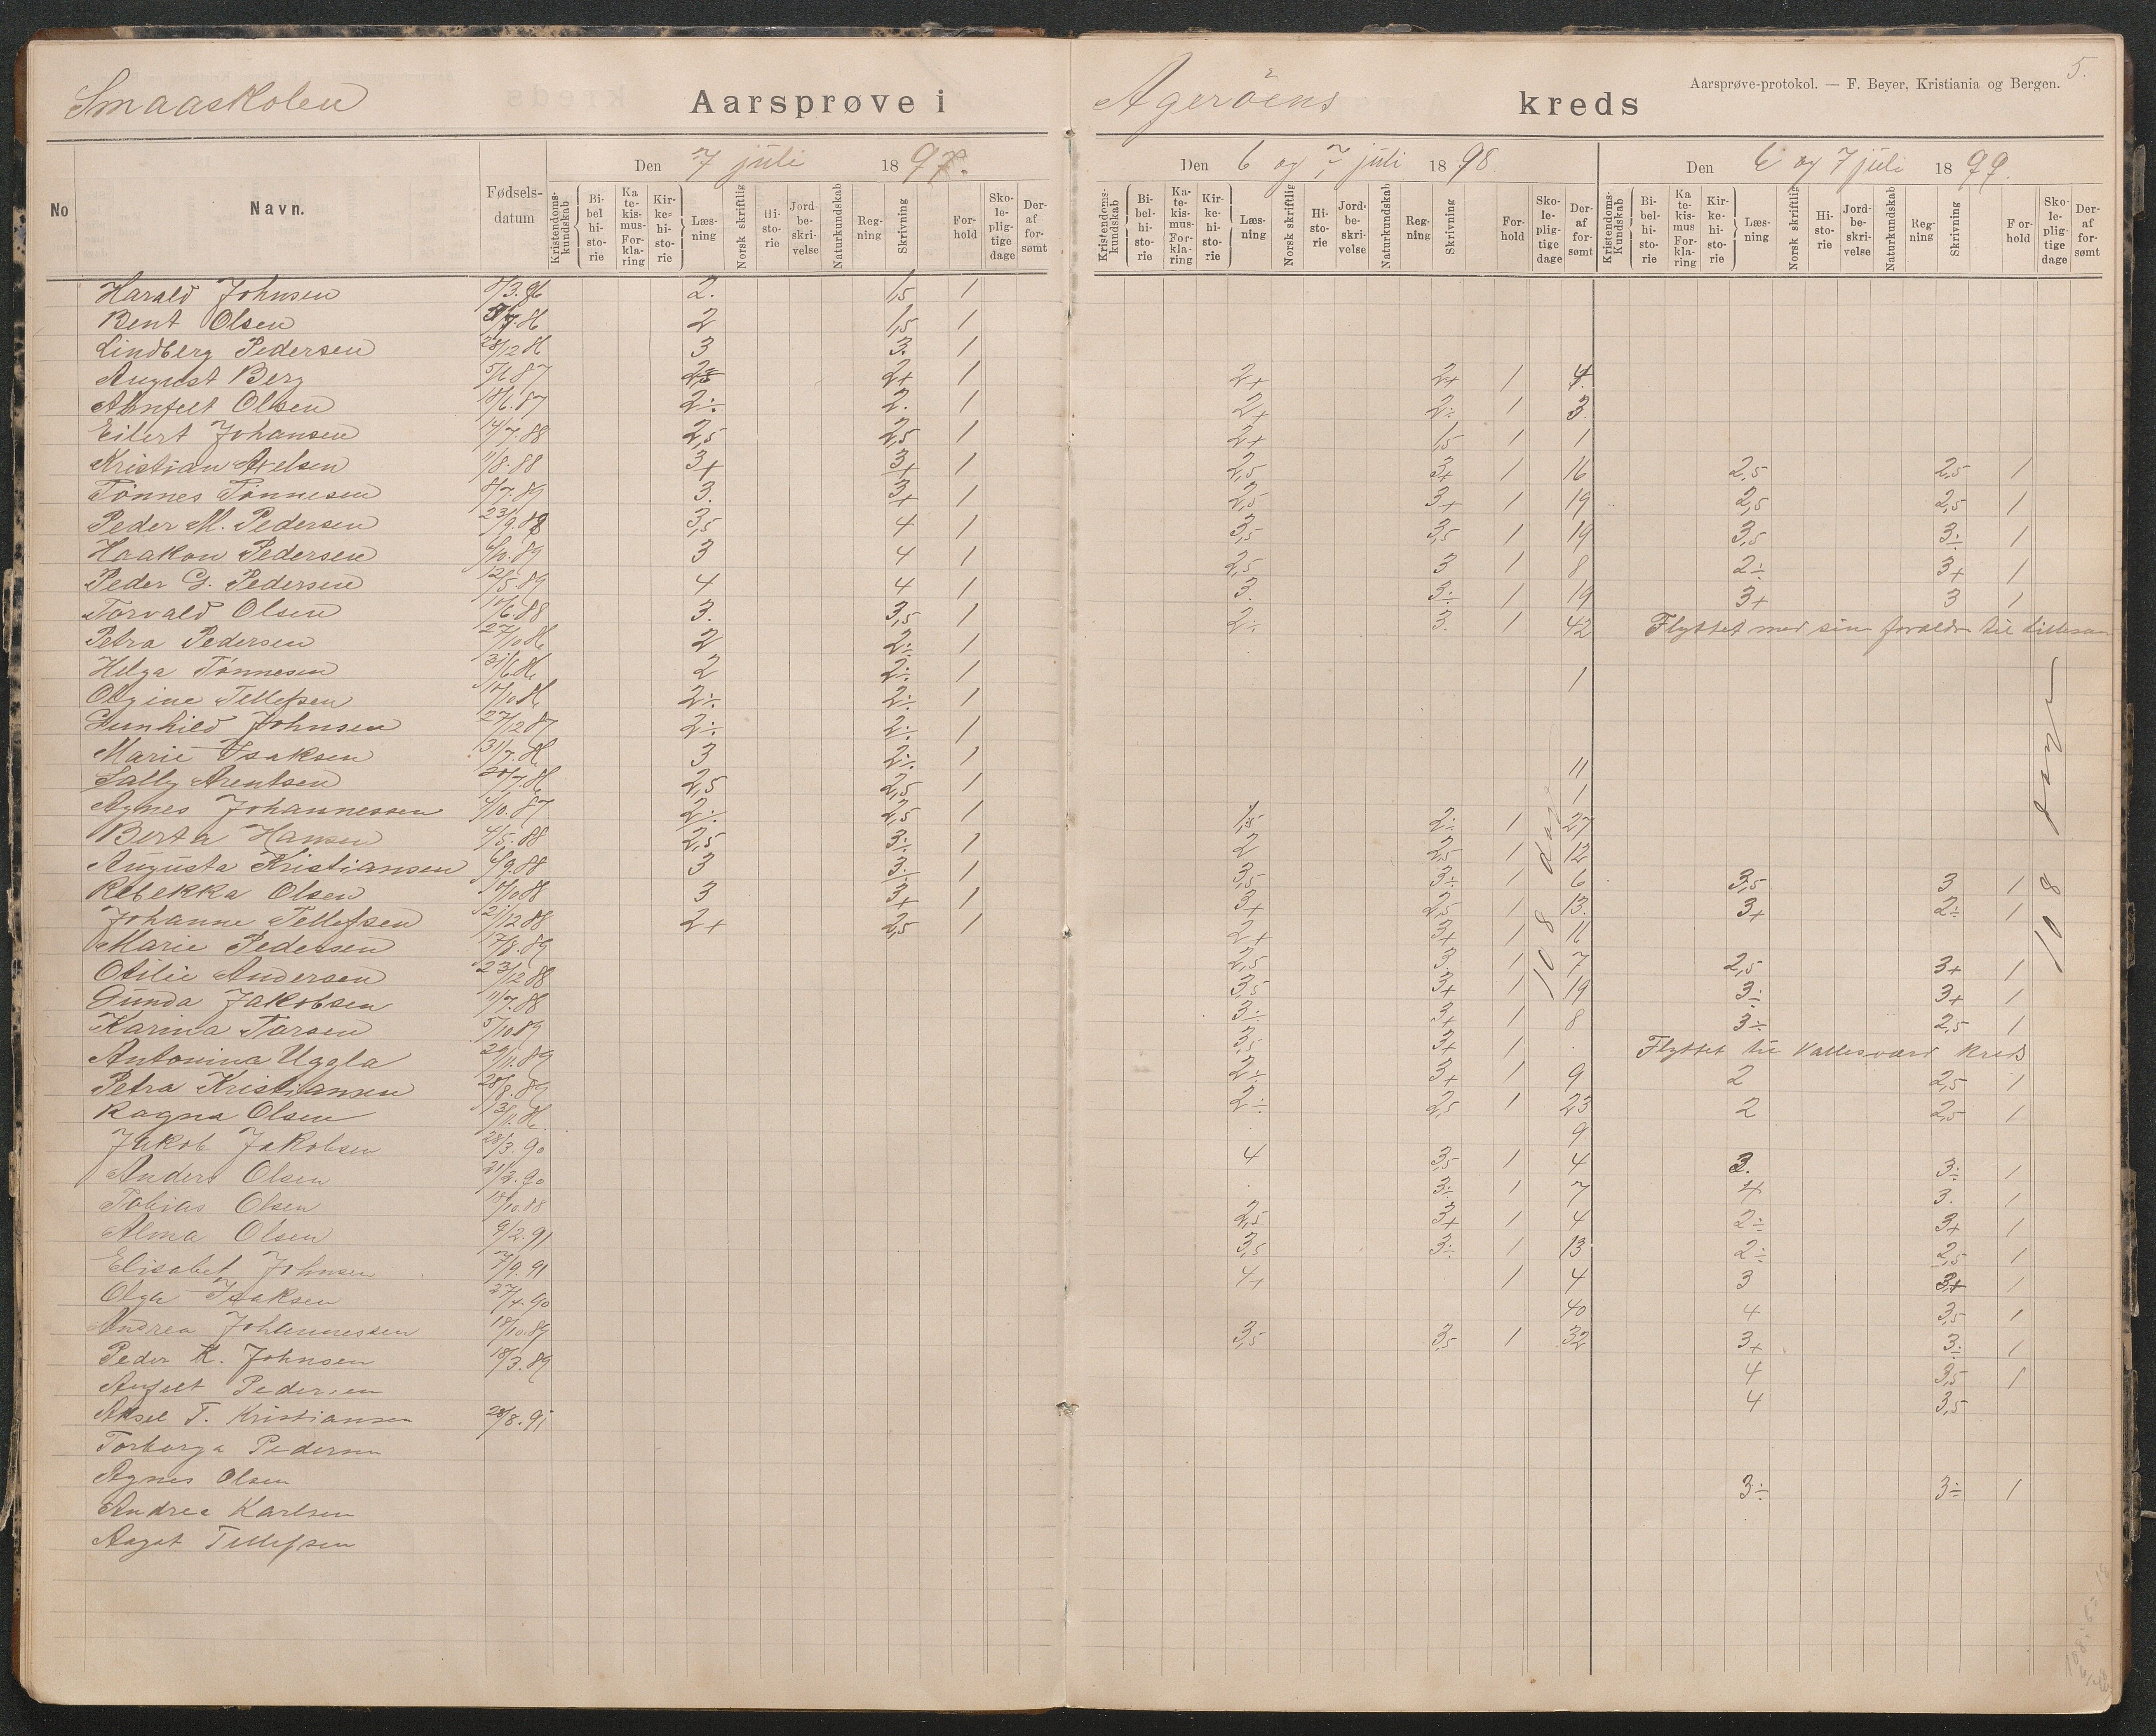 Smaaskolen Aarsprøve i Agerøens kreds
Aarsprøve-protokol. — F. Beyer, Kristiania og Bergen.
5.
Den 7 juli 1897. Den 6 og 7 juli 1898 Den 6 og 7 juli 1899.
No Navn. Fødsels-datum Kristendoms-kundskab Bi-bel hi-sto-rie Ka te-kis-mus- For-kla-ring Kir-ke-hi-sto-rie Læs-ning Norsk skriftlig Hi-sto-rie Jord-be-skri-velse Naturkundskab Reg-ning Skrivning For-hold Sko-le-plig-tige dage Der-af for-sømt
Harald Johnsen 8/3.86 2. 1,5 1
Bent Olsen 7.86 2 1,5 1
Lindberg Pedersen 28/12 86 3 3. 1
August Berg 5/1 87 2+ 1 2+ 2+ 1 4
Ahnfelt Olsen 18/6.87 2÷ 2. 1 2+ 2÷ 1 3
Eilert Johansen 14/7.88 2,5 2,5 1 2+ 1,5 1 1
Kristian Axelsen 11/8.88 3+ 3+ 1 2,5 3+ 1 16 2,5 2,5 1
Tönnes Tönnesen 8/7.89 3. 3+ 1 2,5 3+ 1 19 2,5 2,5 1
Peder M. Pedersen 23/9.88 3,5 4 1 3,5 3,5 1 19 3,5 3÷ 1
Haakon Pedersen 6/10.89 3 4 1 2,5 3 1 8 2÷ 3+ 1
Peder G. Pedersen 12/5.89 4 4 1 3. 3÷ 1 19 3+ 3 1
Torvald Olsen 10/6.88 3. 3,5 1 2÷ 3. 1 42 Flyttet med sin foreldre til Lillesan
Petra Pedersen 27/10 86 2 2÷ 1
Helga Tönnesen 31/1 86 2 2÷ 1 1
Olgine Tellefsen 10/10 86 2÷ 2÷ 1
Gunhild Johnsen 27/12 87 2÷ 2÷ 1
Marie Isaksen 31/7.86 3 2÷ 1 11
Sally Arentsen 20/7.86 2,5 2,5 1 1
Agnes Johannessen 4/10.87 2÷ 2,5 1 1,5 2÷ 1 27
Berta Hansen 4/5.88 2,5 3÷ 1 2 2,5 1 12
Augusta Kristiansen 6/9.88 3 3÷ 1 3,5 3÷ 1 6 3,5 3 1
Rebekka Olsen 10/10 88 3 3+ 1 3+ 2,5 1 13. 3+ 2÷ 1
Johanne Tellefsen 21/12 88 2+ 2,5 1 2+ 3+ 1 16
Marie Pedersen 17/8.89 2,5 3. 1 7 2,5 3+ 1
Otilie Andersen 23/12 88 3,5 3+ 1 19 3÷ 3+ 1
Gunda Jakobsen 11/7.88 3÷ 3+ 1 8 3÷ 2,5 1
Karina Torsen 5/10 89 3,5 3+ 1 Flyttet til Vallesværd kreds
Antonina Uggla 29/11.89 2÷ 3+ 1 9 2 2,5 1
Petra Kristiansen 28/8.89 2÷ 2,5 1 23 2 2,5 1
Ragna Olsen 13/11.86 9
Jakob Jakobsen 28/3.90 4 3,5 1 4 3. 3÷ 1
Anders Olsen 31/3.90 3÷ 1 7 4 3. 1
Tobias Olsen 18/10.88 2,5 3+ 1 4 2÷ 3+ 1
Alma Olsen 9/2.91 3,5 3÷ 1 13 2÷ 2,5 1
Elisabet Johnsen 7/9.91 4+ 1 4 3 3+ 1
Olga Isaksen 27/4.90 40 4 3,5 1
Andrea Johannessen 18/10.89 3,5 3,5 1 32 3+ 3÷ 1
Peder K. Johnsen 18/3.89 4 3,5 1
Anfelt Pedersen 4 3,5
Aksel T. Kristiansen 28/8.91
Torborga Pedersen
Agnes Olsen 3÷ 3÷ 1
Andrea Karlsen
Aagot Tellefsen
108 dage
108 dage